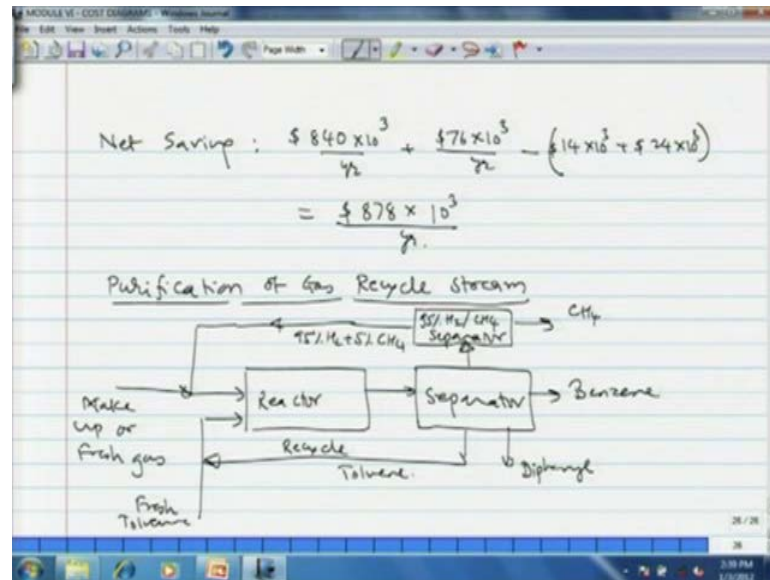 MODULE VI - COST DIAGRAMS - Windows Journal
File Edit View Insert Actions Tools Help
Page Width
Net Saving : $ 840 x 10^3 / yr + $76 x 10^3 / yr - ($14 x 10^3 + $ 24 x 10^3)
= $ 878 x 10^3 / yr.
Purification of Gas Recycle Stream
95% H2 + 5% CH4
95% H2 / CH4
Separator
CH4
Make
up or
Fresh gas
Reactor
Separator
Benzene
Recycle
Toluene.
Diphenyl
Fresh
Toluene
26 / 26
26
2:39 PM
1/3/2012